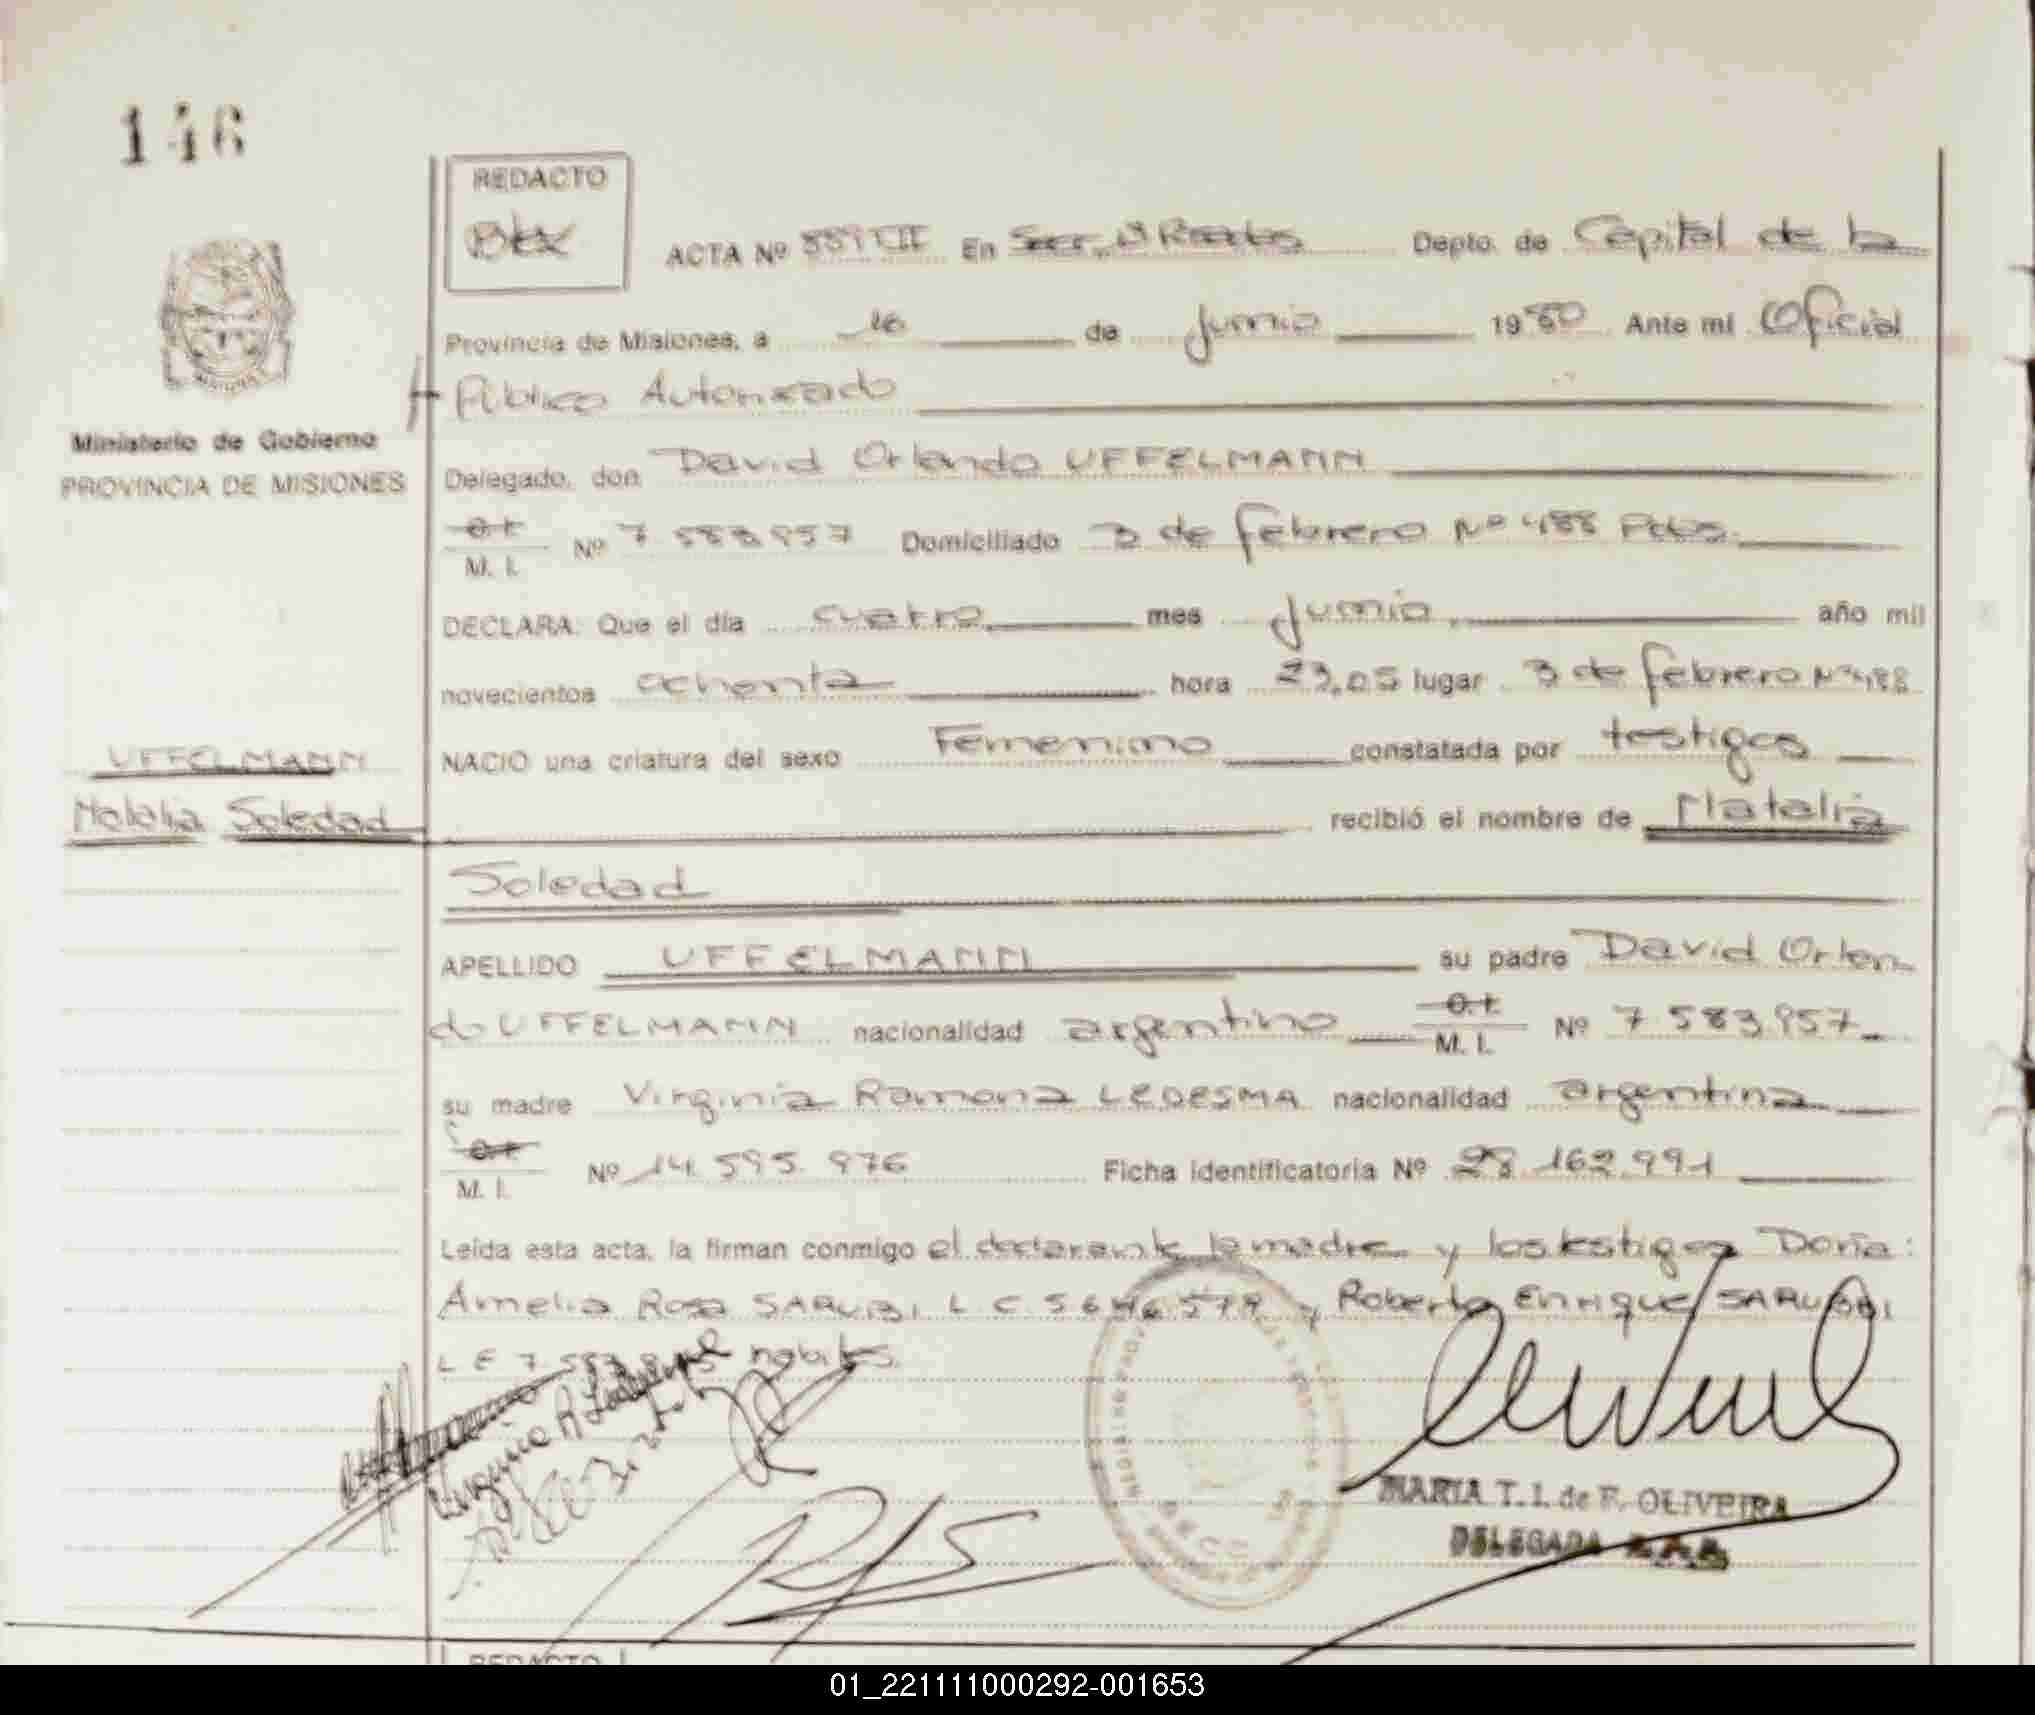 146
REDACTO
ACTA Nº 889 III En Secc. Depto. de Capital de la
Provincia de Misiones, a 16 de Junio 1980 Ante mi Oficial
Público Autorizado
Ministerio de Gobierno
PROVINCIA DE MISIONES
Delegado, don David Orlando UFFELMANN
M. I. Nº 7 583.957 Domiciliado 3 de febrero Nº 488 Pdas.
DECLARA: Que el día cuatro mes Junio año mil
novecientos ochenta hora 23,05 lugar 3 de febrero Nº 488
NACIO una criatura del sexo Femenino constatada por testigos
UFFELMANN
Natalia Soledad
recibió el nombre de Natalia
Soledad
APELLIDO UFFELMANN su padre David Orlan
do UFFELMANN nacionalidad argentino M. I. Nº 7 583.957
su madre Virginia Ramona LEDESMA nacionalidad argentina
M. I. Nº 14.595.976 Ficha identificatoria Nº 28.162.991
Leída esta acta, la firman conmigo el declarante la madre y los testigos Doña:
Amelia Rosa SARUBBI L C y Roberto Enrique SARUBBI
L E 7 habiles.
MARIA T. I. de F. OLIVEIRA
DELEGADA
REDACTO
01_221111000292-001653